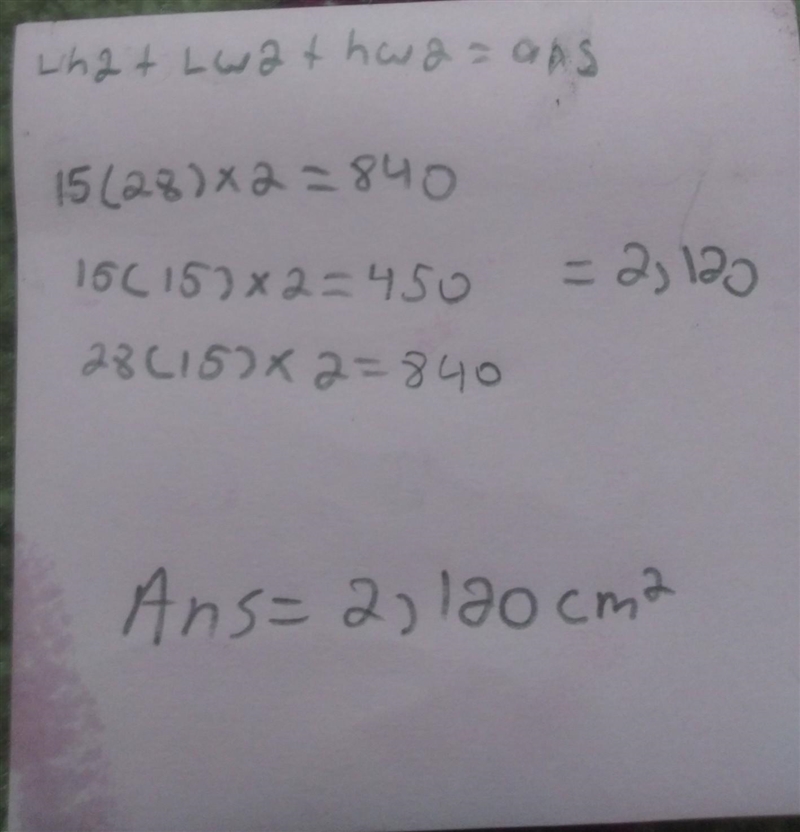 Lh2 + Lw2 + hw2 = ans
15(28)×2=840
15(15)×2=450 = 2,120
28(15)× 2=840
Ans= 2,120 cm²